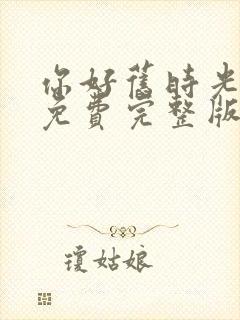 你好舊時光
免費完整版
瓊姑娘